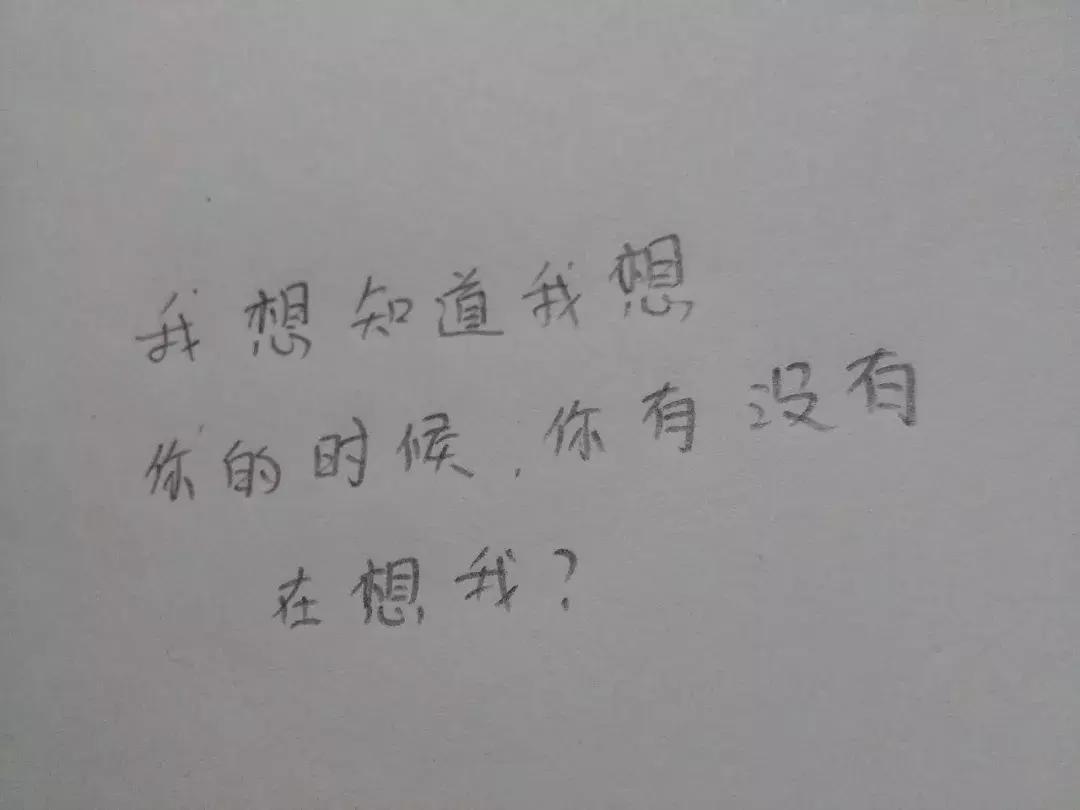 我想知道我想
你的时候，你有没有
在想我？